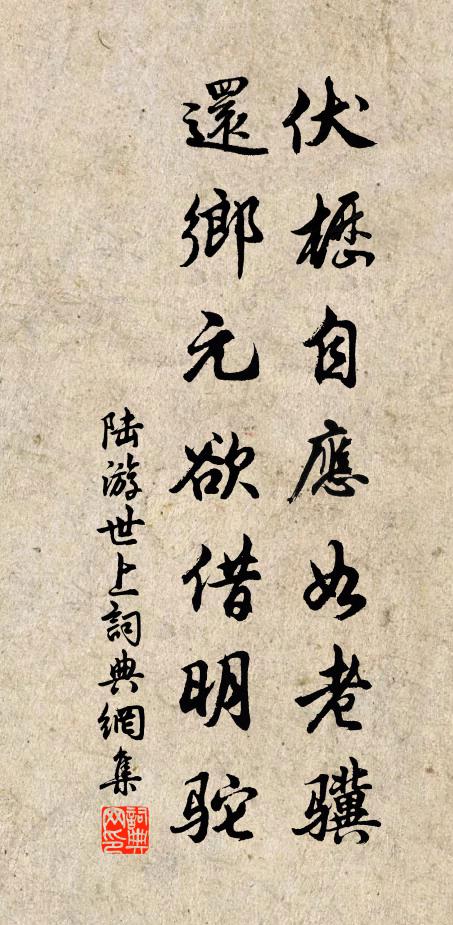 伏櫪自應如老驥
還鄉元欲借明駝
陆游世上詞典網集
詞典網印